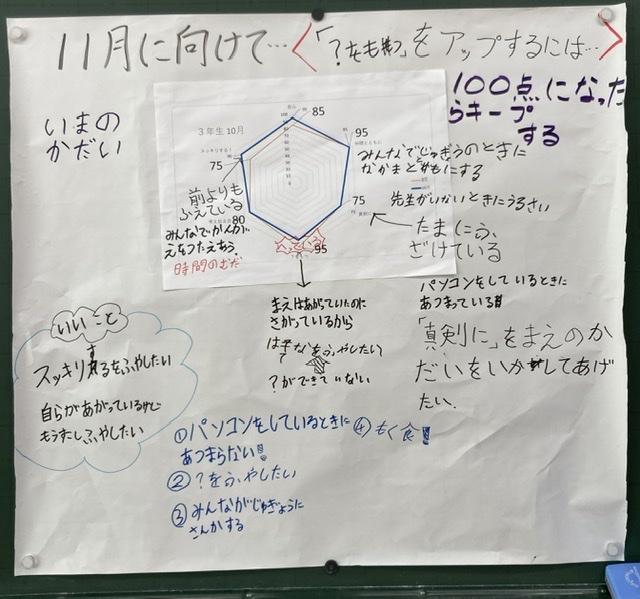 11月に向けて…
「?をもつ」をアップするには…
100点になった
らキープ
する
いまの
かだい
3年生10月
85
95
75
75
80
95
みんなでじゅぎょうのときに
なかまとともにする
先生がいないときにうるさい
たまにふ
ざけている
前よりも
ふえている
みんなでかんが
えをつたえあう
時間のむだ
へっている
パソコンをしているときに
あつまっている
まえはあがっていたのに
さがっているから
?ができていない
「真剣に」をまえのか
だいをいかしてあげ
たい。
いいこと
スッキリするをふやしたい
自らがあがっているけど
もうすこしふやしたい
①パソコンをしているときに
あつまらない!
②?をふやしたい
③みんながじゅぎょうに
さんかする
④もく食!